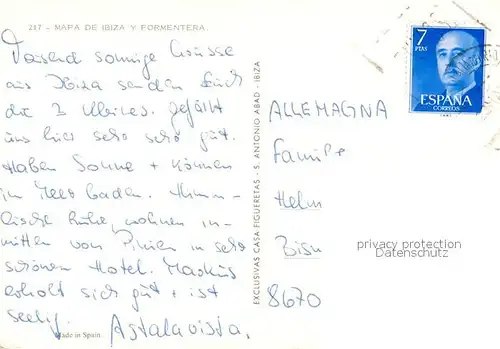 217 - MAPA DE IBIZA Y FORMENTERA.
Tausend sonnige Grüsse
aus Ibiza senden Euch
die 3 Gefällt
uns hier sehr sehr gut.
Haben Sonne + können
im Meer baden. Himm-
lische Ruhe, wohnen in-
mitten von Pinien in sehr
schönem Hotel. Markus
erholt sich gut + ist
seelig. Astalavista,
Made in Spain
EXCLUSIVAS CASA FIGUERETAS - S. ANTONIO ABAD - IBIZA
7
PTAS
ESPAÑA
CORREOS
ALLEMAGNA
Familie
Helm
8670
privacy protection
Datenschutz